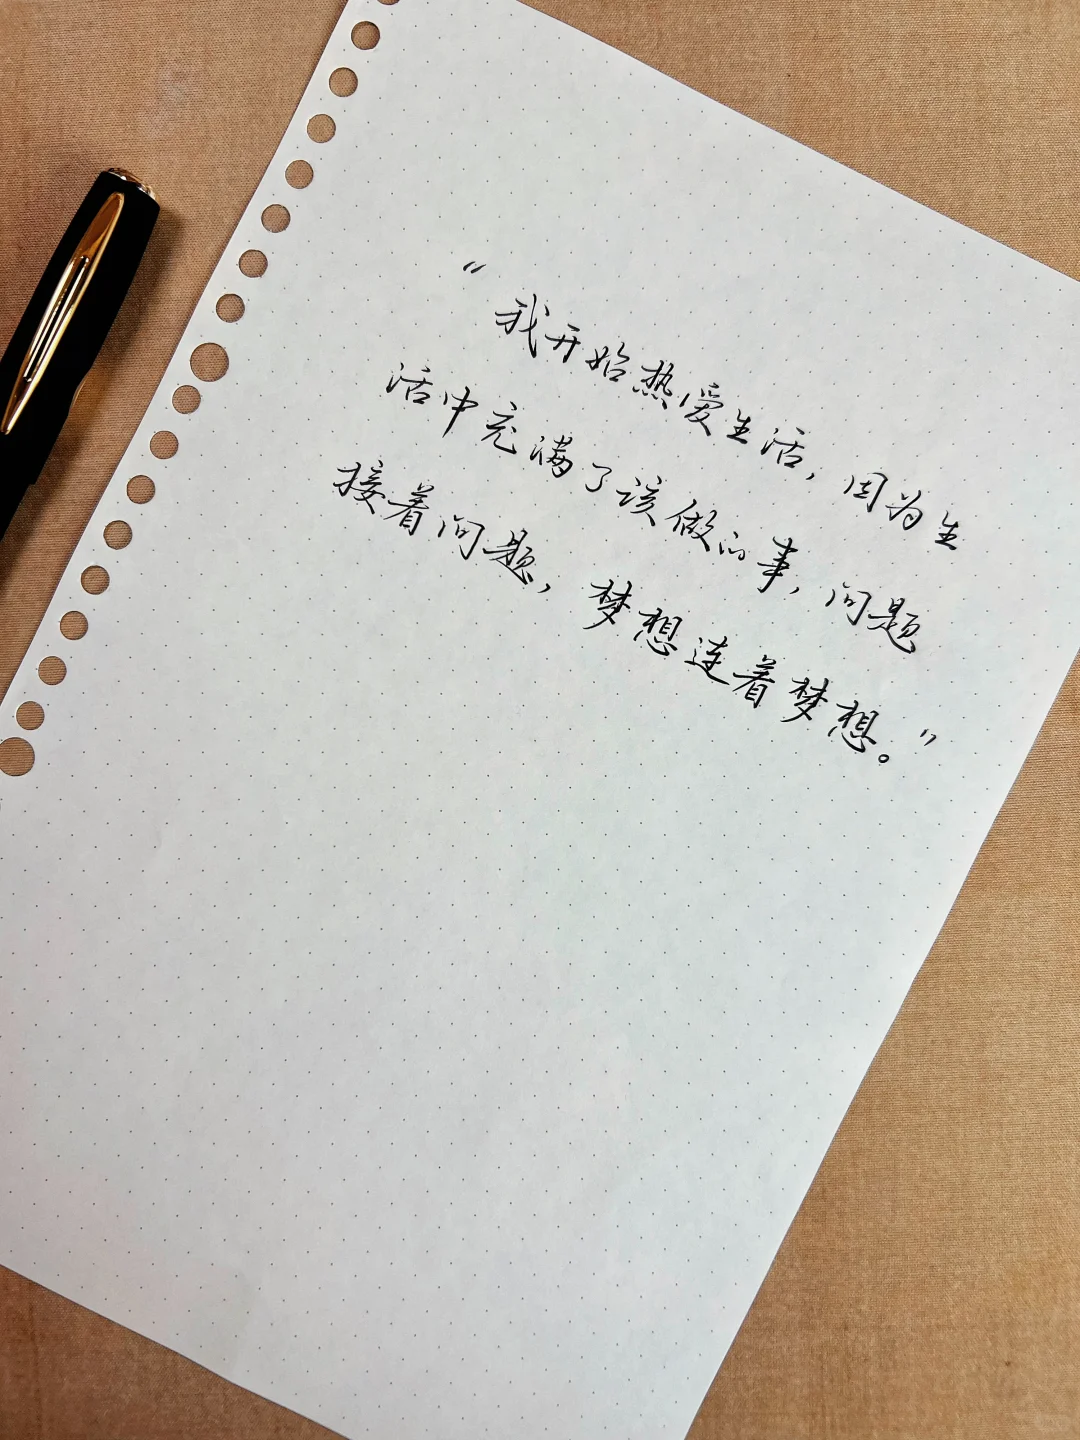 “我开始热爱生活，因为生
活中充满了该做的事，问题
接着问题，梦想连着梦想。”